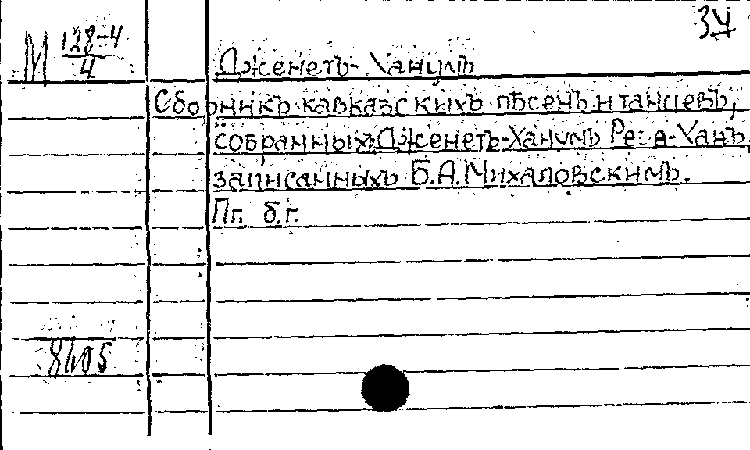 34
М 128-4
4
Дженетъ-Ханумъ
Сборникъ кавказскихъ пѣсенъ и танцевъ,
собранныхъ Дженетъ-Ханумъ Ре-а-Ханъ,
записанныхъ Б.А.Михаловскимъ.
Пг. б.г.